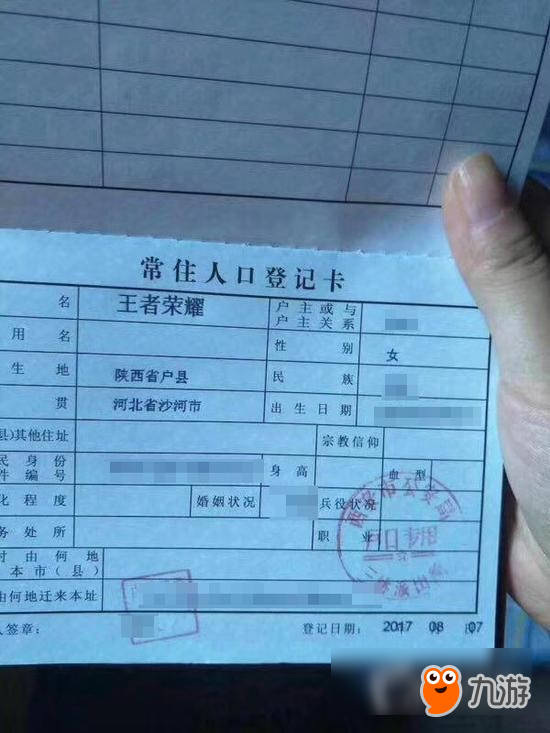 常住人口登记卡
名 王者荣耀 户主或与户主关系
用名 性别 女
生地 陕西省户县 民族
贯 河北省沙河市 出生日期
县)其他住址 宗教信仰
民身份件编号 身高 血型
化程度 婚姻状况 兵役状况
务处所 职业
时由何地本市(县)
由何地迁来本址
人签章： 登记日期： 2017 08 07
户口专用
九游